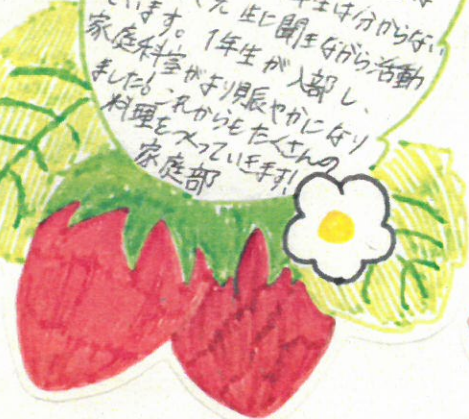 年生は分からない
先生に聞きながら活動
ています。1年生が入部し、
家庭科室がより賑やかになり
ました！これからもたくさんの
料理をつくっていきます！
家庭部